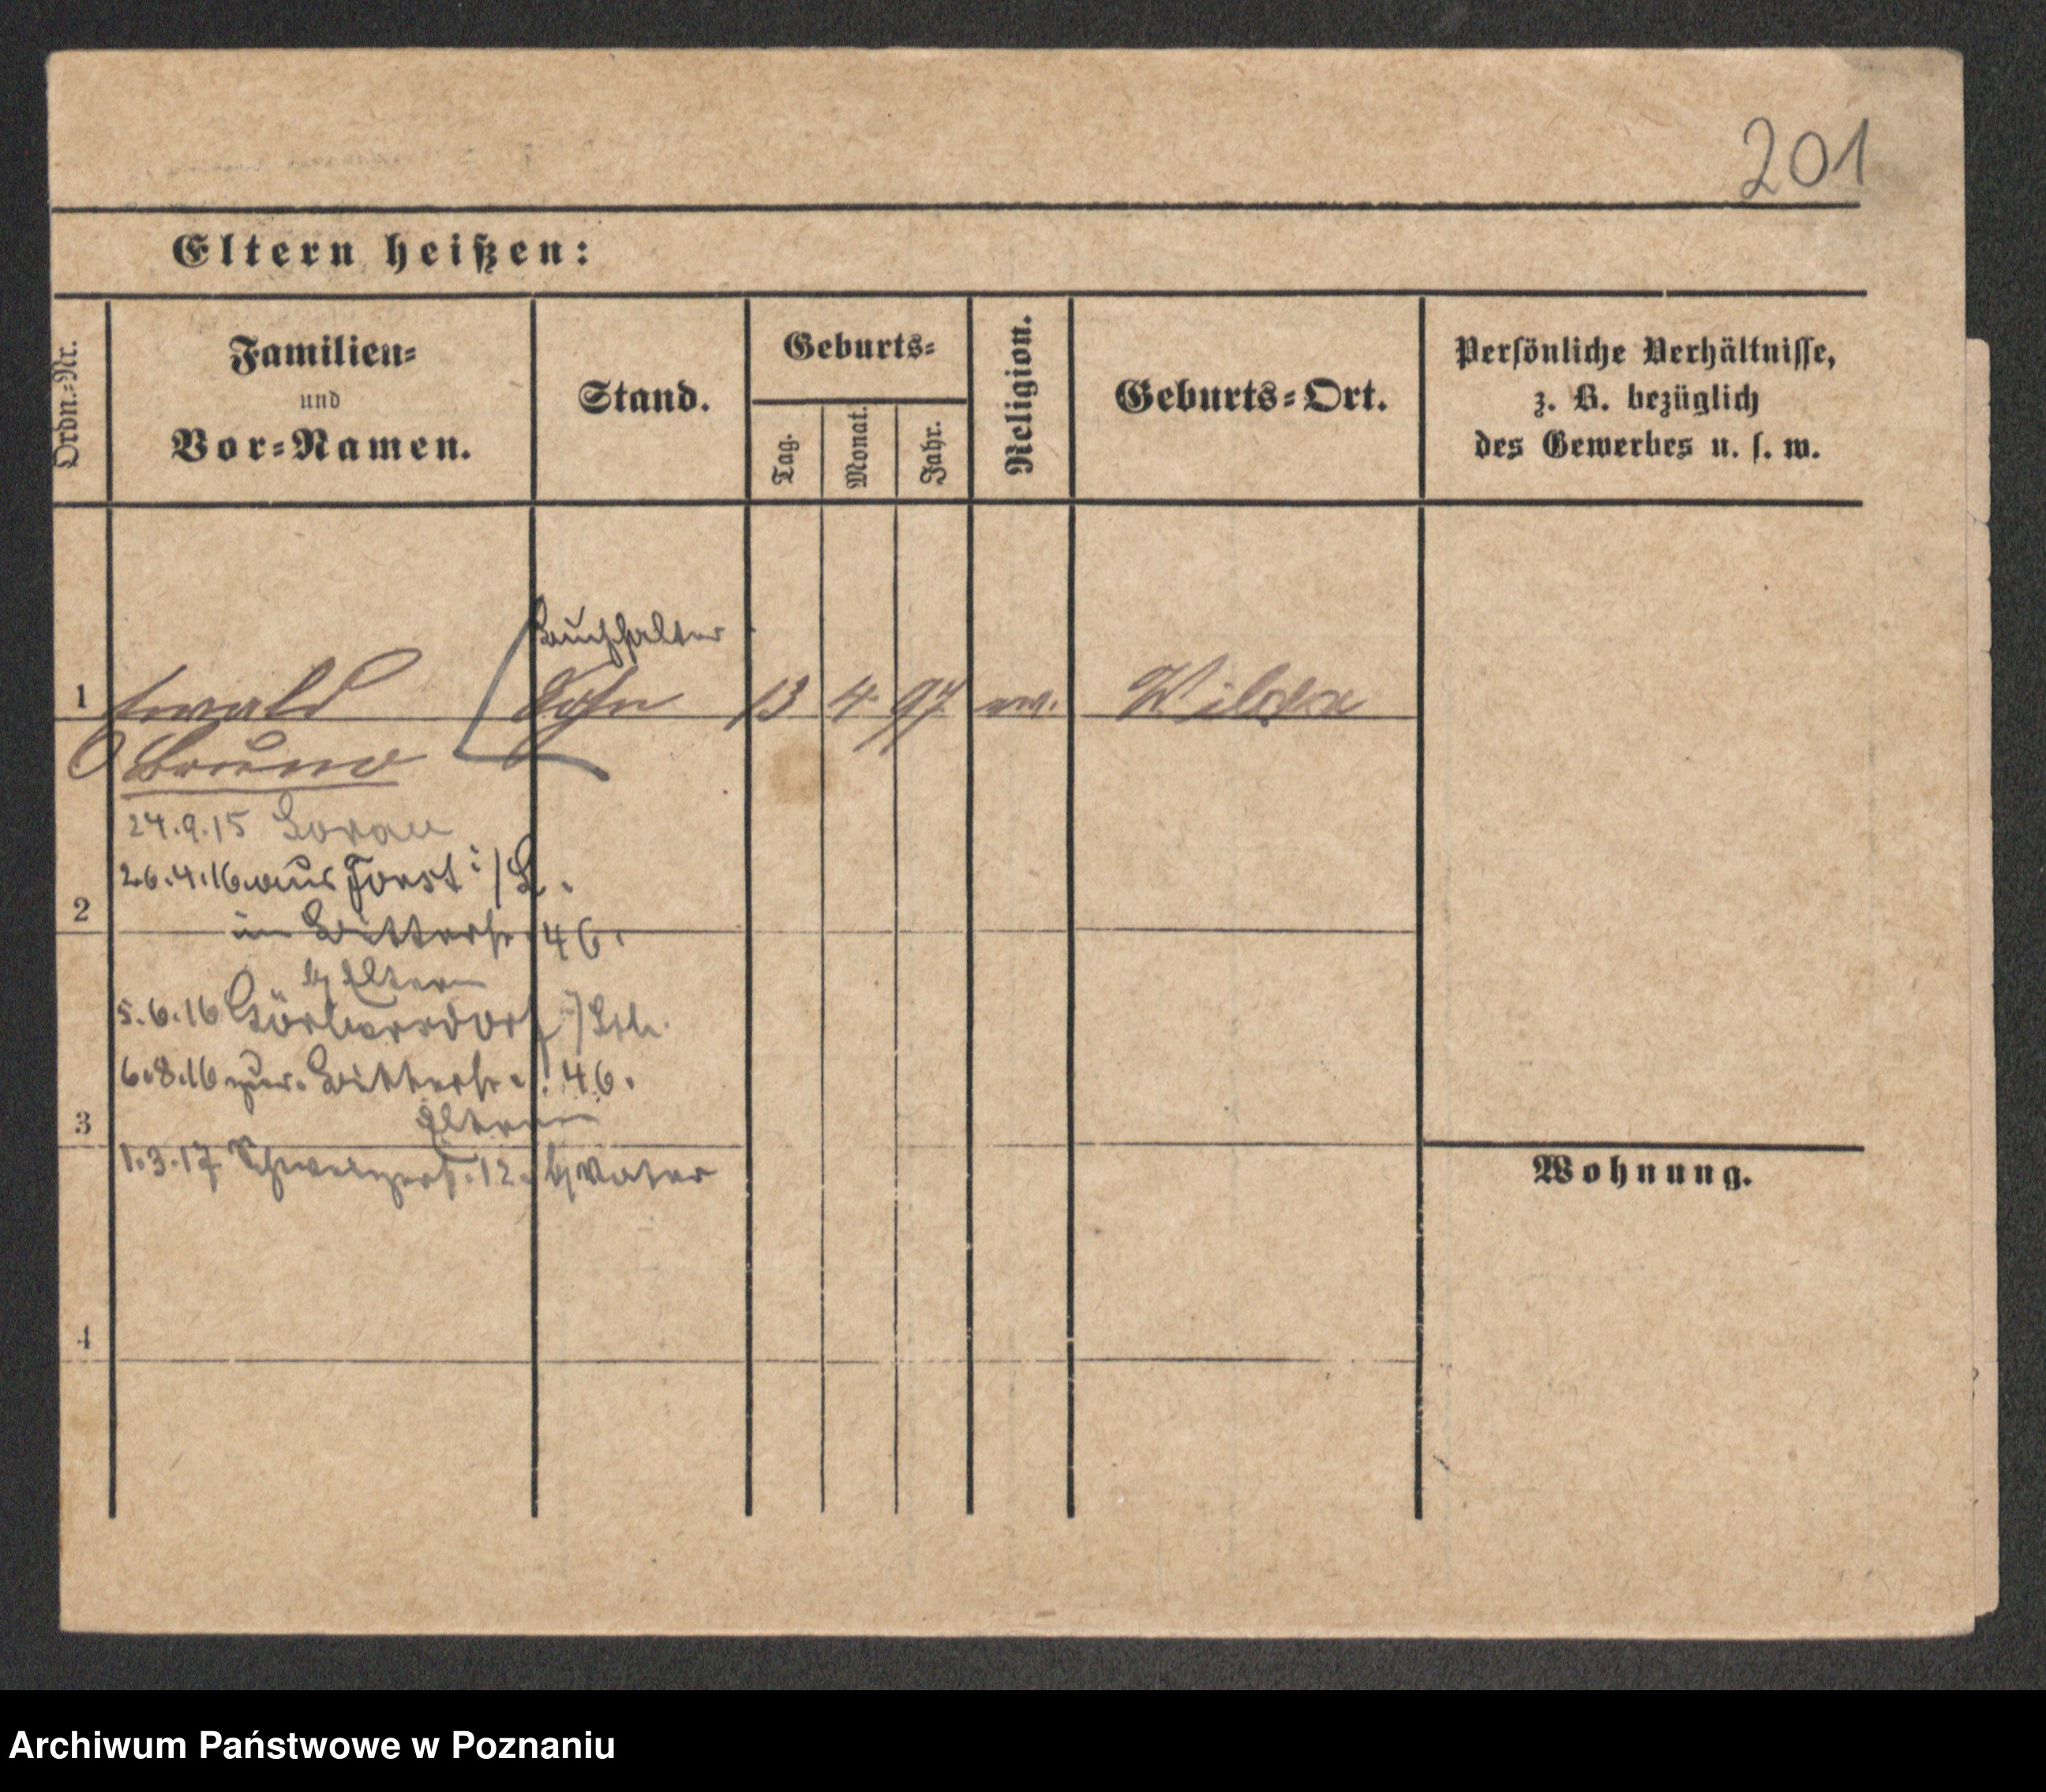 201
Eltern heißen:
Ordn.=Nr.
Familien=
und
Vor=Namen.
Stand.
Geburts=
Tag.
Monat.
Jahr.
Religion.
Geburts=Ort.
Persönliche Verhältnisse,
z. B. bezüglich
des Gewerbes u. s. w.
Buchhalter
1 Ewald Sohn 13 4. 97. ev. Wilda
Bruno
24.9.15 Sorau
26.4.16 aus Forst i/L.
2
in Bitterstr. 46.
b/ Eltern
5.6.16 Görbersdorf i/Sch.
6.8.16 zur. Bitterstr. 46.
Eltern
3
1.3.17 12. b/ Vater
Wohnung.
4
Archiwum Państwowe w Poznaniu